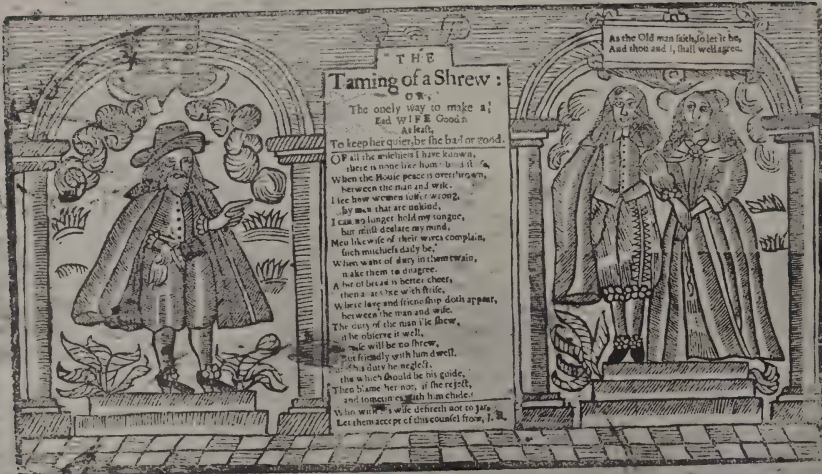 THE
Taming of a Shrew:
OR,
The onely way to make a
Bad WIFE Good:
At least,
To keep her quiet, be she bad or good.
OF all the mischiefs I have known,
there is none like
When the House peace is overthrown,
between the man and wife.
I see how women suffer wrong,
by men that are unkind,
I can no longer hold my tongue,
but must declare my mind,
Men likewise of their wives complain,
such mischiefs daily be,
When want of duty in them twain,
make them to disagree.
A bit of bread is better cheer,
then a fat Oxe with strife,
Where love and friendship doth appear,
between the man and wife.
The duty of the man i'le shew,
if he observe it well,
wife will be no shrew,
But friendly with him dwell.
this duty he neglect,
the which should be his guide,
Then blame her not, if she reject,
and sometimes with him chide.
Who with his wife desireth not to jar,
Let them accept of this counsel from, I. R.
As the Old man saith, so let it be,
And thou and I, shall well agree.